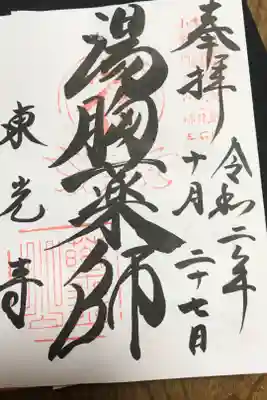 奉拝
令和二年
十月二十七日
湯胸薬師
東光寺